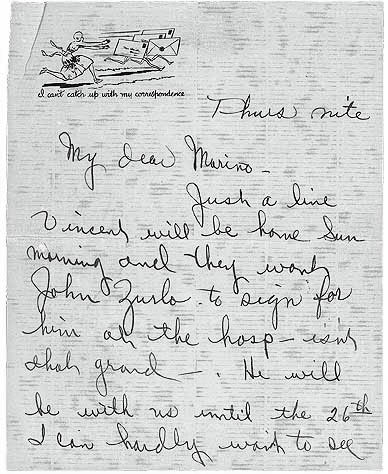 I can't catch up with my correspondence
Thurs nite
My dear Marino -
Just a line
Vincent will be home Sun
morning and they want
John Zurlo to sign for
him at the hosp - isn't
that grand - . He will
be with us until the 26th
I can hardly wait to see